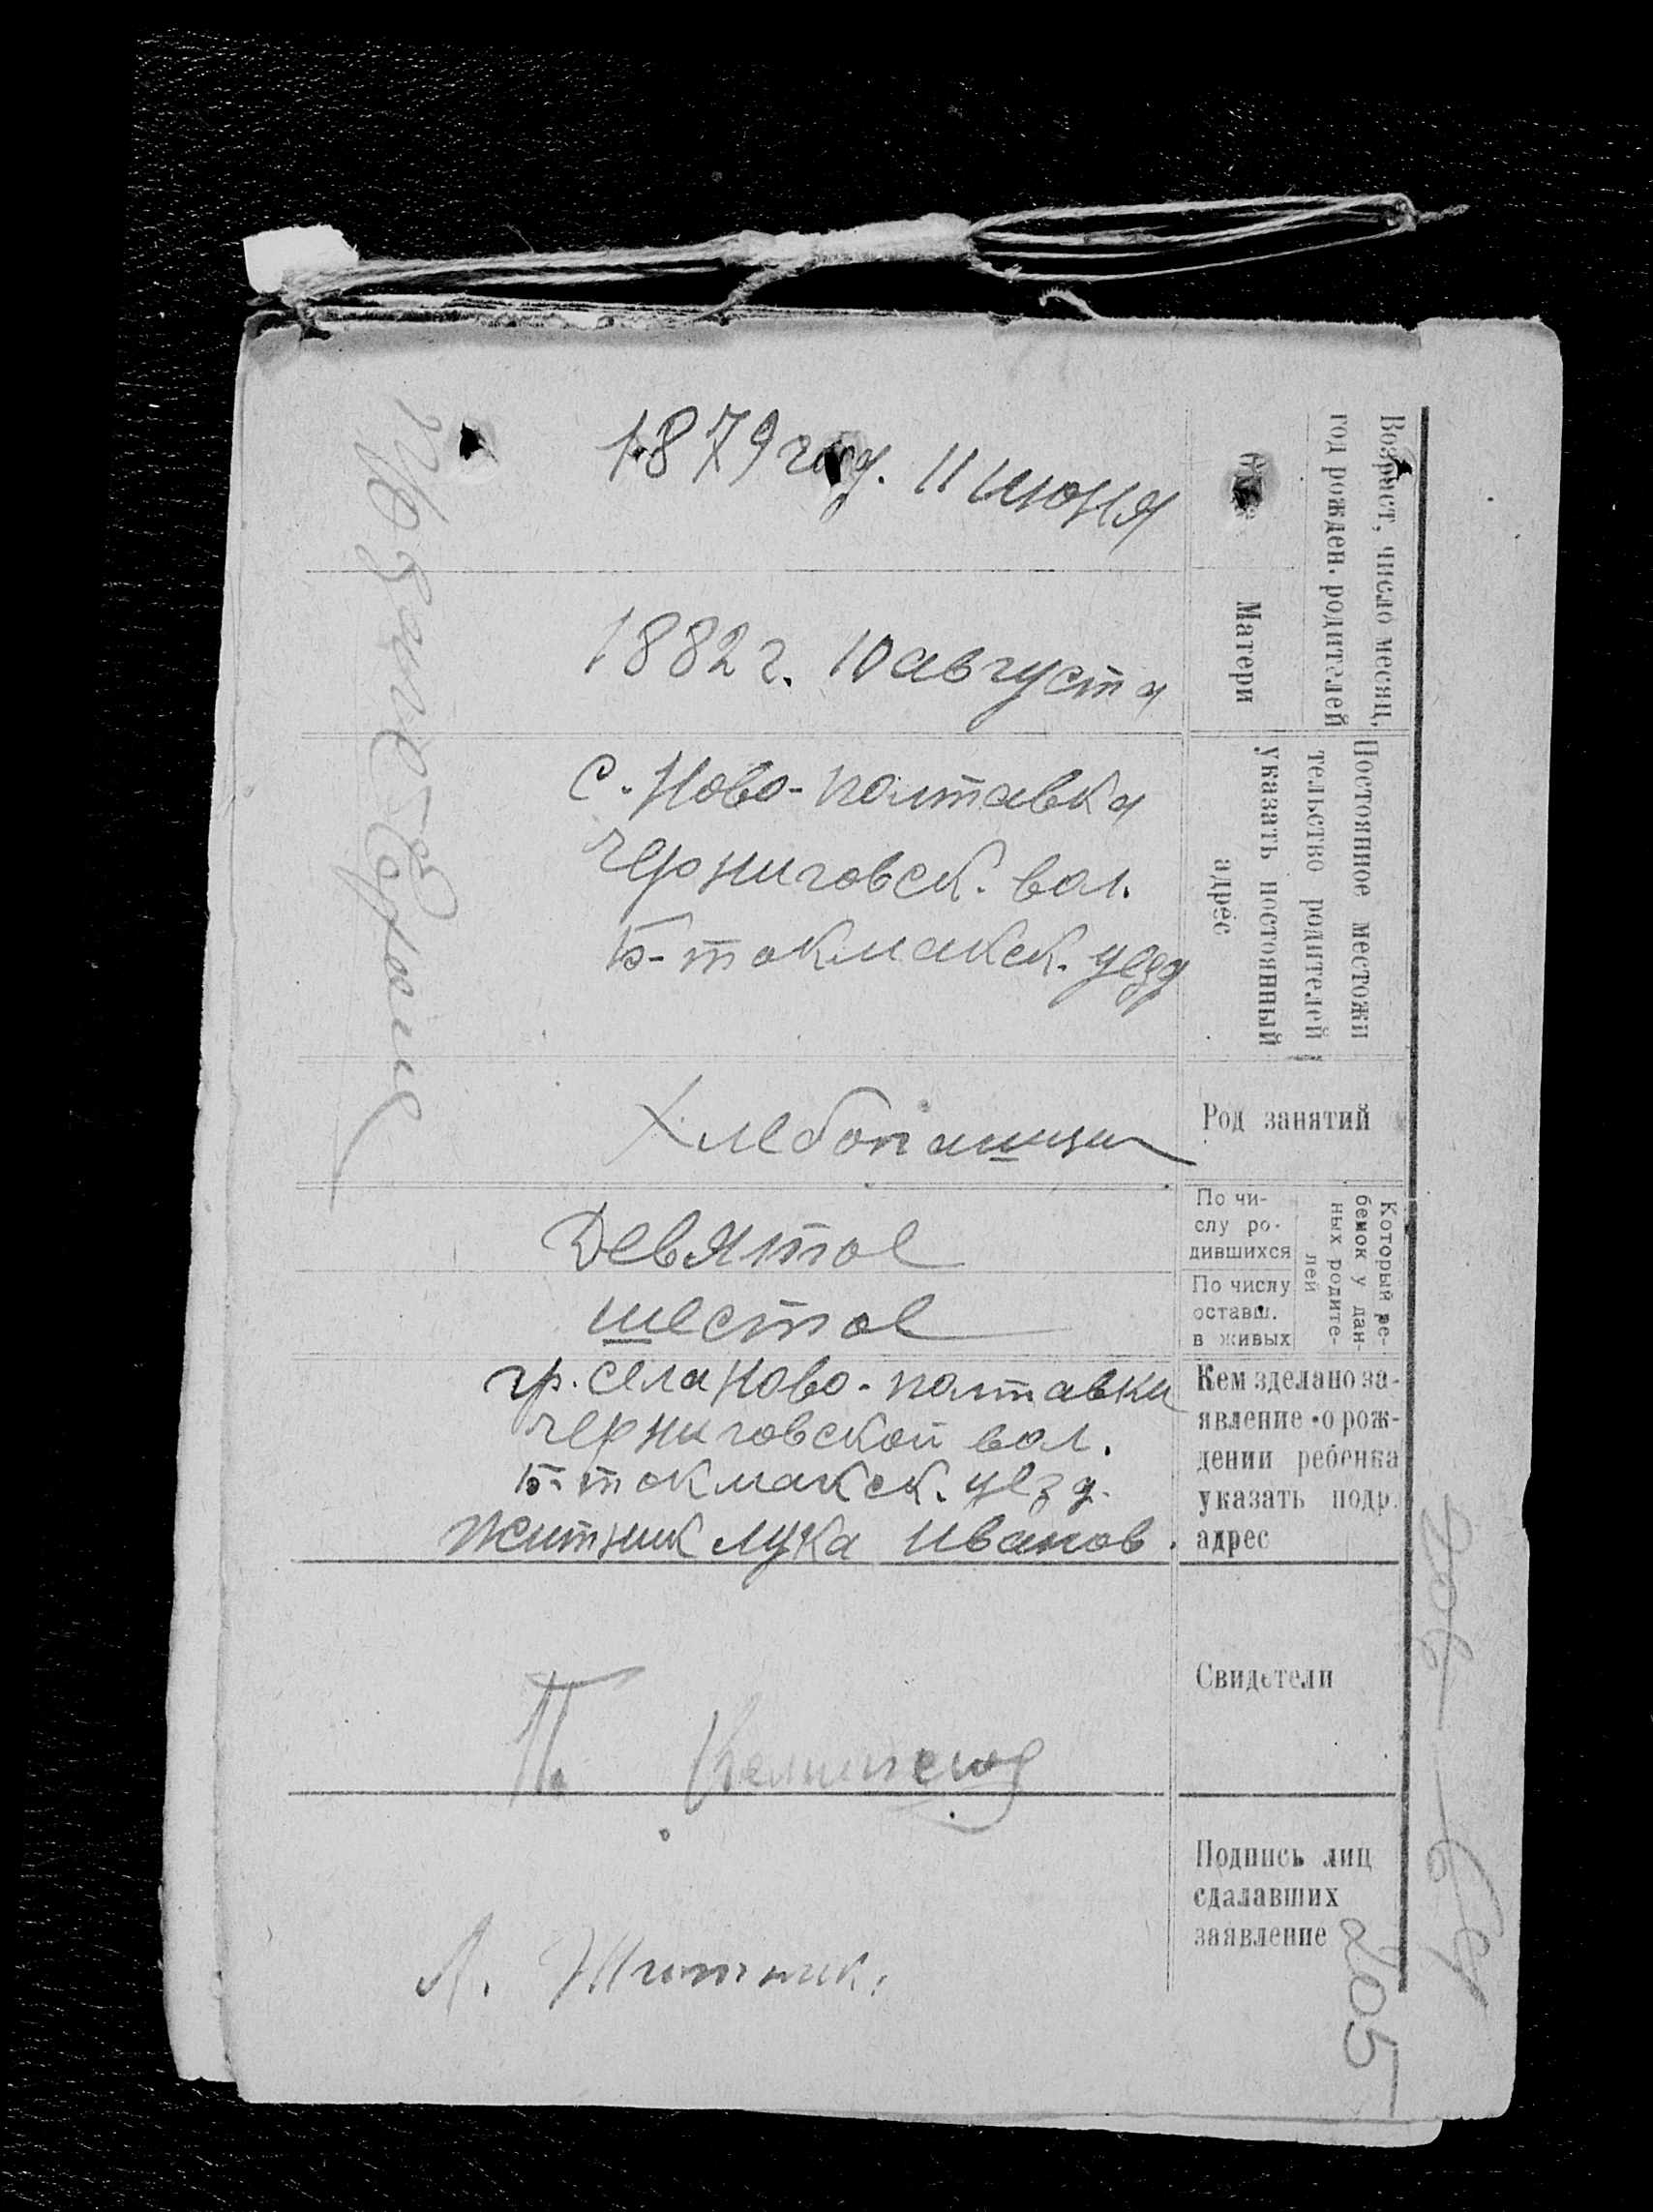 Возраст, число месяц,
год рожден. родителей
1879 год. 11 июня
Матери
1882 г. 10 августа
Постоянное местожи
тельство родителей
указать постоянный
адрес
с. Ново-полтавка
Черниговск. вол.
Б-токмакск. уезд
Род занятий
Хлебопашцы
Который ре-
бенок у дан-
ных родите-
лей
По чи-
слу ро-
дившихся
Девятое
По числу
оставш.
в живых
шестое
Кем зделано за-
явление о рож-
дении ребенка
указать подр.
адрес
гр. села Ново-полтавки
Черниговской вол.
Б-токмакск. уезд.
Житник лука иванов.
Свидетели
Подпись лиц
сдалавших
заявление
Л. Житник.
205